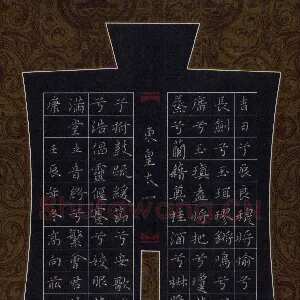 吉日兮辰良穆將愉兮
長劍兮玉珥璆鏘鳴兮
席兮玉瑱盍將把兮瓊
蒸兮蘭藉奠桂酒兮椒
東皇太一
兮拊鼓疏緩節兮安歌
兮浩倡靈偃蹇兮姣服
滿堂五音紛兮繁會
康 壬辰年冬高向前